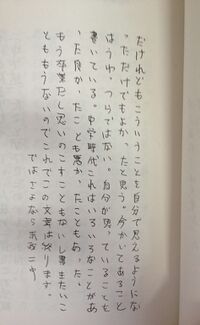 だけれどもこういうことを自分で思えるようにな
っただけでもよか、たと思う。今かいてあること
はうわ、つらではない。自分が思、ていることを
書いている。中学時代これはいろいろなことがあ
った良か、たことも悪か、たこともあ、た、
もう卒業だし思いのこすこともないし書きたいこ
とももうないのでこれでこの文章は終ります。
ではさよなら